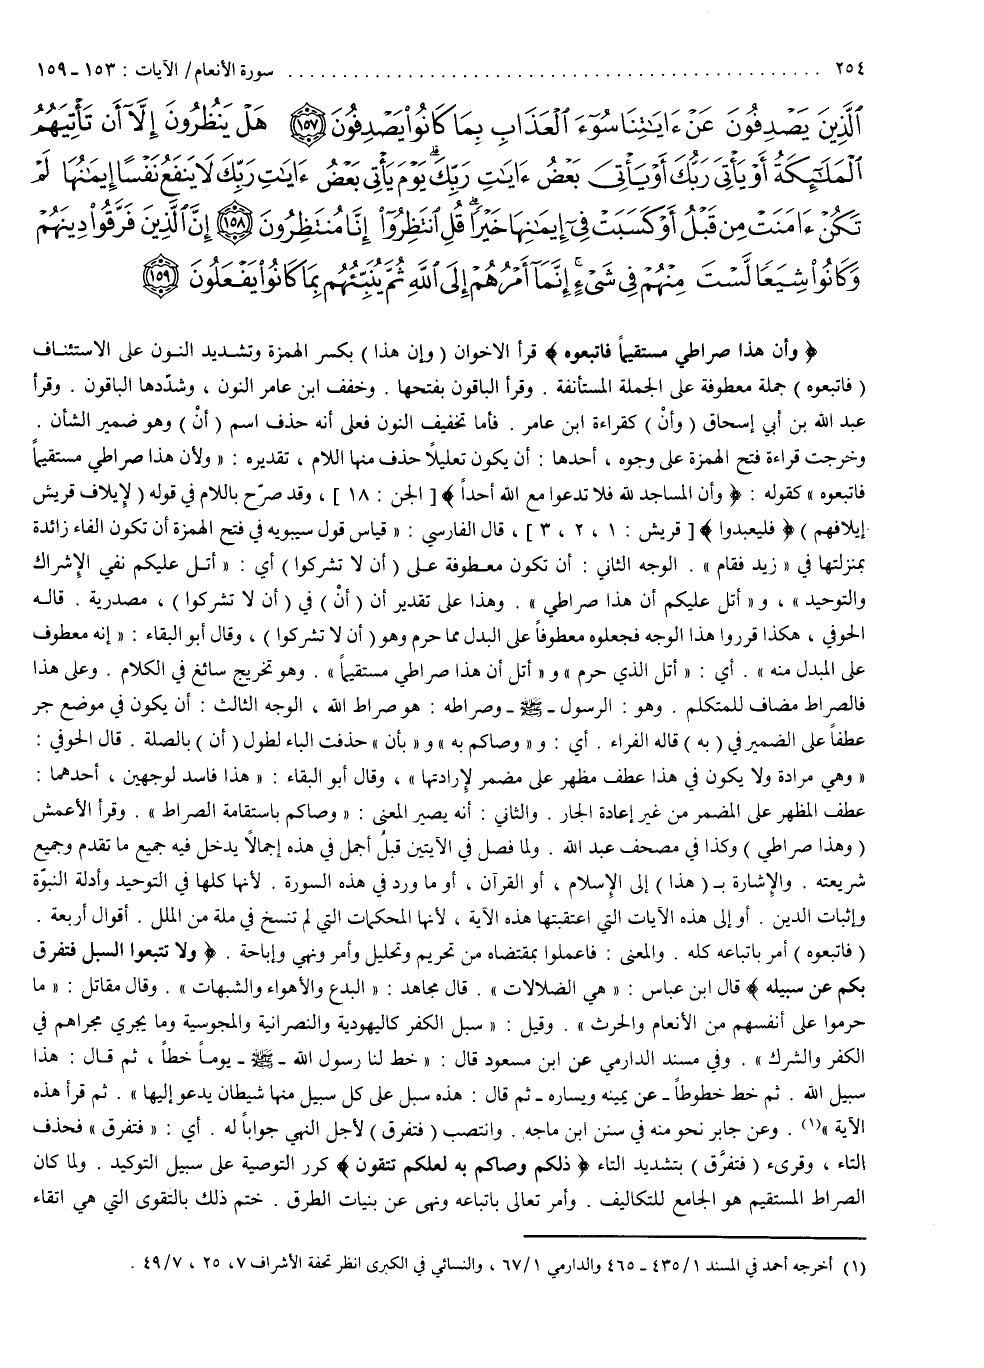 ٢٥٤ .................................................. سورة الأنعام/ الآيات : ١٥٣ ـ ١٥٩
ٱلَّذِينَ يَصْدِفُونَ عَنْ ءَايَٰتِنَا سُوٓءَ ٱلْعَذَابِ بِمَا كَانُوا۟ يَصْدِفُونَ ١٥٧ هَلْ يَنظُرُونَ إِلَّآ أَن تَأْتِيَهُمُ
ٱلْمَلَٰٓئِكَةُ أَوْ يَأْتِىَ رَبُّكَ أَوْ يَأْتِىَ بَعْضُ ءَايَٰتِ رَبِّكَ ۗ يَوْمَ يَأْتِى بَعْضُ ءَايَٰتِ رَبِّكَ لَا يَنفَعُ نَفْسًا إِيمَٰنُهَا لَمْ
تَكُنْ ءَامَنَتْ مِن قَبْلُ أَوْ كَسَبَتْ فِىٓ إِيمَٰنِهَا خَيْرًا ۗ قُلِ ٱنتَظِرُوٓا۟ إِنَّا مُنتَظِرُونَ ١٥٨ إِنَّ ٱلَّذِينَ فَرَّقُوا۟ دِينَهُمْ
وَكَانُوا۟ شِيَعًا لَّسْتَ مِنْهُمْ فِى شَىْءٍ ۚ إِنَّمَآ أَمْرُهُمْ إِلَى ٱللَّهِ ثُمَّ يُنَبِّئُهُم بِمَا كَانُوا۟ يَفْعَلُونَ ١٥٩
﴿ وأن هذا صراطي مستقيماً فاتبعوه ﴾ قرأ الاخوان ( وإن هذا ) بكسر الهمزة وتشديد النون على الاستئناف
( فاتبعوه ) جملة معطوفة على الجملة المستأنفة . وقرأ الباقون بفتحها . وخفف ابن عامر النون ، وشدّدها الباقون . وقرأ
عبد الله بن أبي إسحاق ( وأنْ ) كقراءة ابن عامر . فأما تخفيف النون فعلى أنه حذف اسم ( أنْ ) وهو ضمير الشأن .
وخرجت قراءة فتح الهمزة على وجوه ، أحدها : أن يكون تعليلاً حذف منها اللام ، تقديره : « ولأن هذا صراطي مستقيماً
فاتبعوه » كقوله : ﴿ وأن المساجد لله فلا تدعوا مع الله أحداً ﴾ [ الجن : ١٨ ] ، وقد صرّح باللام في قوله ( لإيلاف قريش
إيلافهم ) ﴿ فليعبدوا ﴾ [ قريش : ١ ، ٢ ، ٣ ] ، قال الفارسي : « قياس قول سيبويه في فتح الهمزة أن تكون الفاء زائدة
بمنزلتها في « زيد فقام » . الوجه الثاني : أن تكون معطوفة على ( أن لا تشركوا ) أي : « أتل عليكم نفي الإشراك
والتوحيد » ، و « أتل عليكم أن هذا صراطي » . وهذا على تقدير أن ( أنْ ) في ( أن لا تشركوا ) ، مصدرية . قاله
الحوفي ، هكذا قرروا هذا الوجه فجعلوه معطوفاً على البدل مما حرم وهو ( أن لا تشركوا ) ، وقال أبو البقاء : « إنه معطوف
على المبدل منه » . أي : « أتل الذي حرم » و « أتل أن هذا صراطي مستقيماً » . وهو تخريج سائغ في الكلام . وعلى هذا
فالصراط مضاف للمتكلم . وهو : الرسول ـ ﷺ ـ وصراطه : هو صراط الله ، الوجه الثالث : أن يكون في موضع جر
عطفاً على الضمير في ( به ) قاله الفراء . أي : و « وصاكم به » و « بأن » حذفت الباء لطول ( أن ) بالصلة . قال الحوفي :
« وهي مرادة ولا يكون في هذا عطف مظهر على مضمر لإرادتها » ، وقال أبو البقاء : « هذا فاسد لوجهين ، أحدهما :
عطف المظهر على المضمر من غير إعادة الجار . والثاني : أنه يصير المعنى : « وصاكم باستقامة الصراط » . وقرأ الأعمش
( وهذا صراطي ) وكذا في مصحف عبد الله . ولما فصل في الآيتين قبلُ أجمل في هذه إجمالاً يدخل فيه جميع ما تقدم وجميع
شريعته . والإشارة بـ ( هذا ) إلى الإسلام ، أو القرآن ، أو ما ورد في هذه السورة . لأنها كلها في التوحيد وأدلة النبوّة
وإثبات الدين . أو إلى هذه الآيات التي اعتقبتها هذه الآية ، لأنها المحكمات التي لم تنسخ في ملة من الملل . أقوال أربعة .
( فاتبعوه ) أمر باتباعه كله . والمعنى : فاعملوا بمقتضاه من تحريم وتحليل وأمر ونهي وإباحة . ﴿ ولا تتبعوا السبل فتفرق
بكم عن سبيله ﴾ قال ابن عباس : « هي الضلالات » . قال مجاهد : « البدع والأهواء والشبهات » . وقال مقاتل : « ما
حرموا على أنفسهم من الأنعام والحرث » . وقيل : « سبل الكفر كاليهودية والنصرانية والمجوسية وما يجري مجراهم في
الكفر والشرك » . وفي مسند الدارمي عن ابن مسعود قال : « خط لنا رسول الله ـ ﷺ ـ يوماً خطاً ، ثم قال : هذا
سبيل الله . ثم خط خطوطاً ـ عن يمينه ويساره ـ ثم قال : هذه سبل على كل سبيل منها شيطان يدعو إليها » . ثم قرأ هذه
الآية »(١) . وعن جابر نحو منه في سنن ابن ماجه . وانتصب ( فتفرق ) لأجل النهي جواباً له . أي : « فتفرق » فحذف
التاء ، وقرىء ( فتفرَّق ) بتشديد التاء ﴿ ذلكم وصاكم به لعلكم تتقون ﴾ كرر التوصية على سبيل التوكيد . ولما كان
الصراط المستقيم هو الجامع للتكاليف . وأمر تعالى باتباعه ونهى عن بنيات الطرق . ختم ذلك بالتقوى التي هي اتقاء
(١) أخرجه أحمد في المسند ١/ ٤٣٥ ـ ٤٦٥ والدارمي ١/ ٦٧ ، والنسائي في الكبرى انظر تحفة الأشراف ٧، ٢٥ ، ٤٩/٧ .